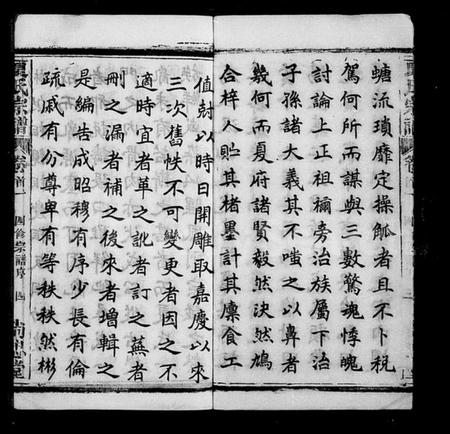 螗流瑣靡定操觚者且不卜稅
駕何所而謀與三數驚魂悸魄
討論上正祖禰旁治族屬下治
子孫諸大義其不嗤之以鼻者
幾何而夏府諸賢毅然決然鳩
合梓人貽其楮墨計其廩食工
值尅以時日開雕取嘉慶以來
三次舊帙不可變更者因之不
適時宜者革之訛者訂之蕪者
刪之漏者補之後來者增輯之
是編告成昭穆有序少長有倫
疏戚有份尊卑有等秩秩然彬
夏氏宗譜 卷首一 四修宗譜序 四